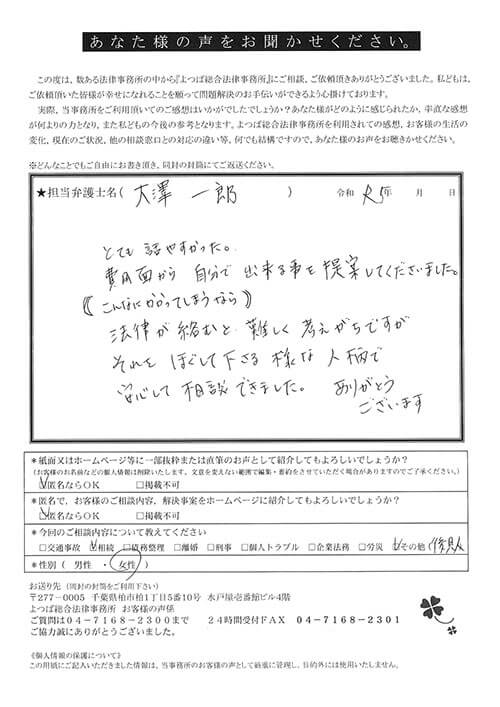 あなた様の声をお聞かせください。
この度は、数ある法律事務所の中から『よつば総合法律事務所』にご相談、ご依頼頂きありがとうございました。私どもは、
ご依頼頂いた皆様が幸せになれることを願って問題解決のお手伝いができるよう心掛けております。
実際、当事務所をご利用頂いてのご感想はいかがでしたでしょうか?あなた様がどのように感じられたか、率直な感想
が何よりの力となり、また私どもの今後の参考となります。よつば総合法律事務所を利用されての感想、お客様の生活の
変化、現在のご状況、他の相談窓口との対応の違い等、何でも結構ですので、あなた様のお声をお聴きかせください。
※どんなことでもご自由にお書き頂き、同封の封筒にてご返送ください。
★担当弁護士名( 大澤 一郎 ) 令和 年 月 日
とても 話やすかった。
費用面から 自分で 出来る事を 提案してくださいました。
《こんなにかかってしまうなら》
法律が 絡むと 難しく 考えがちですが
それを ほぐして下さる 様な 人柄で
安心して 相談 できました。 ありがとう
ございます
*紙面又はホームページ等に一部抜粋または直筆のお声として紹介してもよろしいでしょうか?
(お客様のお名前などの個人情報は削除いたします。文意を変えない範囲で編集・要約をさせていただく場合がありますのでご了承ください。)
☑匿名ならOK □掲載不可
*匿名で、お客様のご相談内容、解決事案をホームページに紹介してもよろしいでしょうか?
☑匿名ならOK □掲載不可
*今回のご相談内容について教えてください
□交通事故 ☑相続 □債務整理 □離婚 □刑事 □個人トラブル □企業法務 □労災 ☑その他(後見人
*性別 ( 男性 ・ 女性 )
お送り先 (同封の封筒をご利用下さい)
〒277-0005 千葉県柏市柏1丁目5番10号 水戸屋壱番館ビル4階
よつば総合法律事務所 お客様の声係
ご質問は04-7168-2300まで 24時間受付FAX 04-7168-2301
ご協力誠にありがとうございました。
《個人情報の保護について》
この用紙にご記入いただきました情報は、当事務所のお客様の声として厳重に管理し、目的外には使用いたしません。